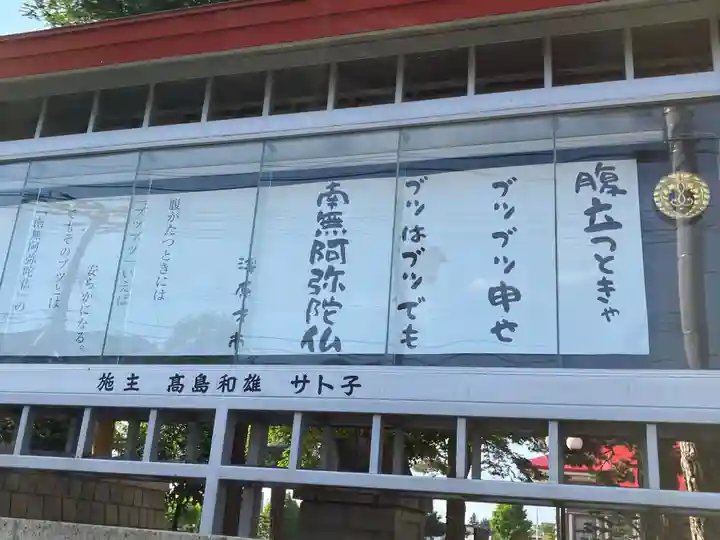 腹立つときゃ
ブツブツ申せ
ブツはブツでも
南無阿弥陀仏
腹がたつときには
「ブツブツ」いえば
安らかになる。
でもそのブツとは
「南無阿弥陀仏」の
施主 髙島和雄 サト子